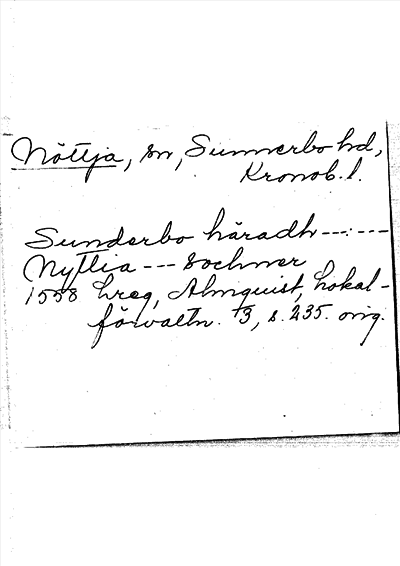 Nöttja, sn, Sunnerbo hd,
Kronob. l.
Sunderbo häradh --- : ---
Nyttia --- Sochner
1558 Lreg, Almquist, Lokal-
förvaltn. 3, s. 235. orig.